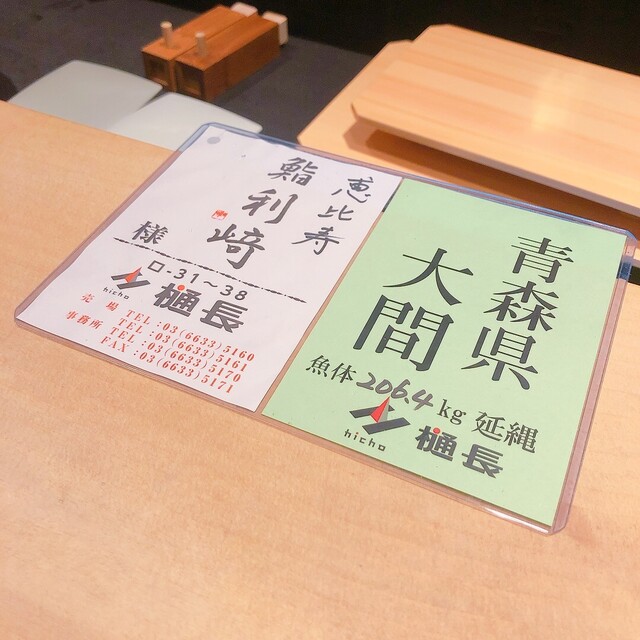 恵比寿
鮨利﨑
様
ロ-31～38
hicho
樋長
売場 TEL:03(6633)5160
TEL:03(6633)5161
事務所 TEL:03(6633)5170
FAX:03(6633)5171
青森県
大間
魚体 206.4 kg 延縄
hicho
樋長